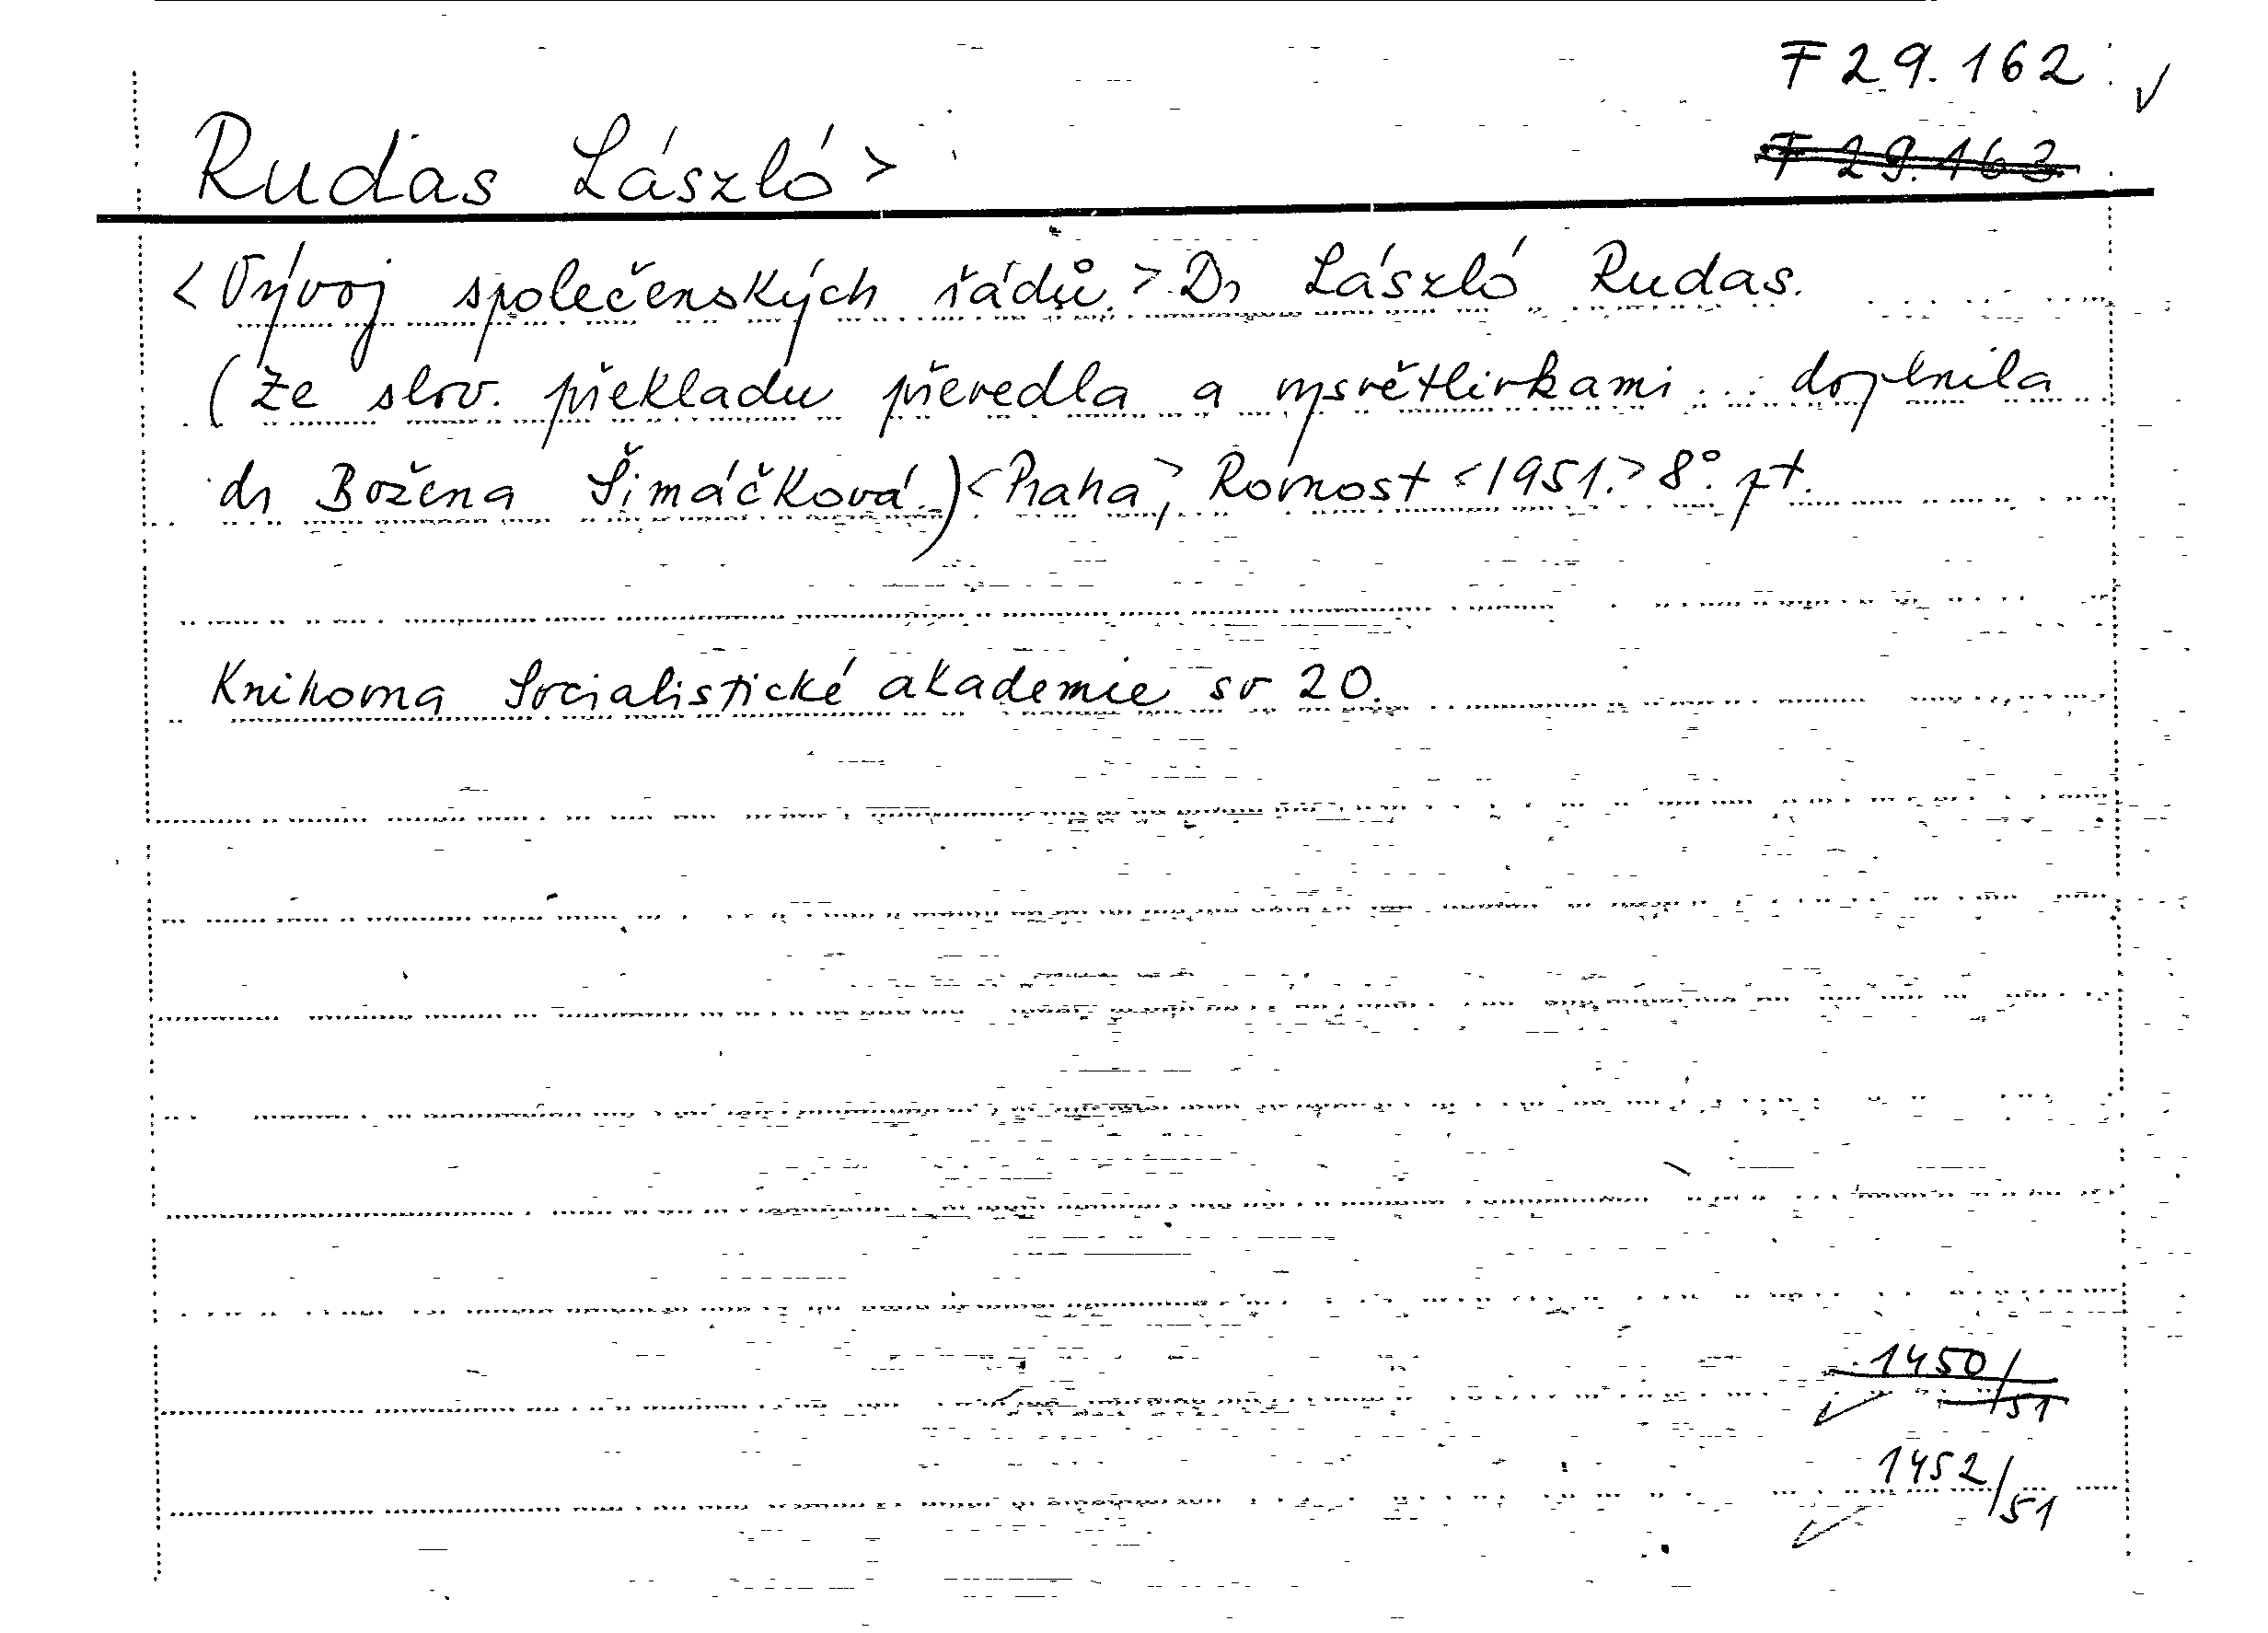 F 29.162
F 29.163
Rudas László>
<Vývoj společenských řádů.> Dr László Rudas.
(Ze slov. překladu převedla a vysvětlivkami... doplnila
dr Božena Šimáčková.) <Praha>, Rovnost <1951.> 8°. pt.
Knihovna Socialistické akademie sv 20.
1450/51
1452/51